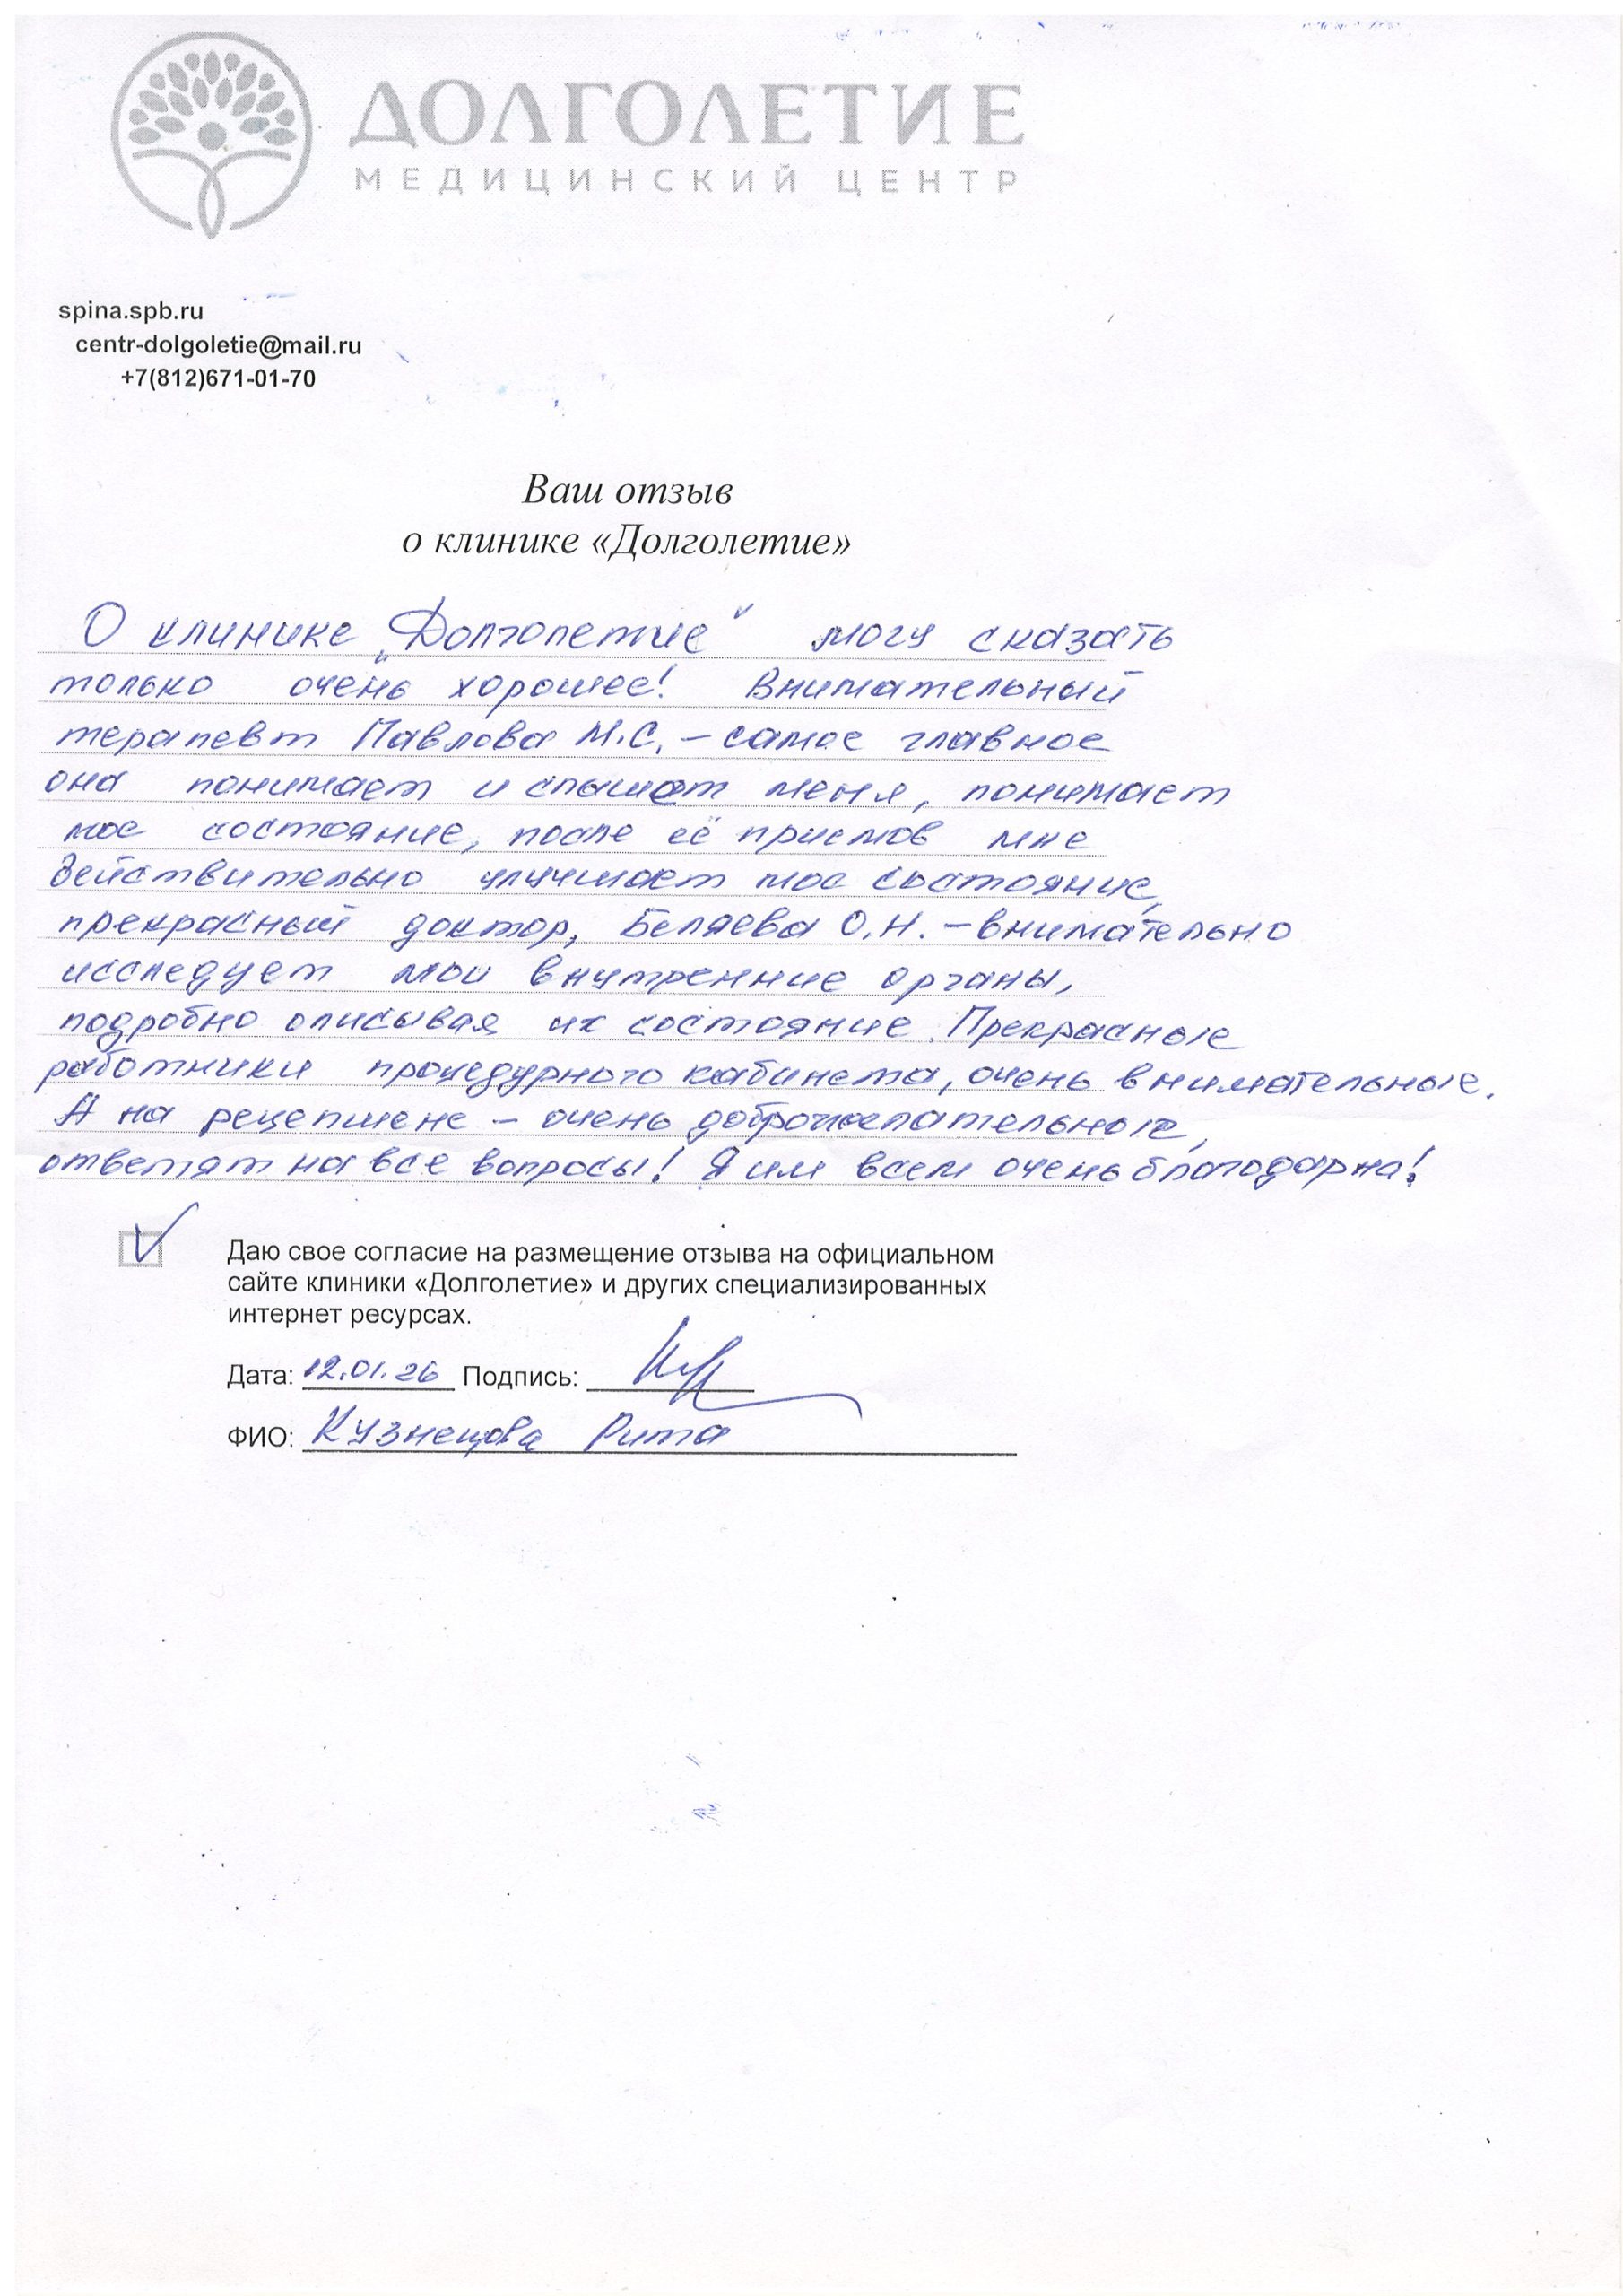 ДОЛГОЛЕТИЕ
МЕДИЦИНСКИЙ ЦЕНТР
spina.spb.ru
centr-dolgoletie@mail.ru
+7(812)671-01-70
Ваш отзыв
о клинике «Долголетие»
О клинике „Долголетие" могу сказать
только очень хорошее! Внимательный
терапевт Павлова М.С. – самое главное
она понимает и слышет меня, понимает
мое состояние, после её приемов мне
действительно улучшает мое состояние,
прекрасный доктор, Беляева О.Н. – внимательно
исследует мои внутренние органы,
подробно описывая их состояние. Прекрасные
работники процедурного кабинета, очень внимательные.
А на рецепшене – очень доброжелательные,
ответят на все вопросы! Я им всем очень благодарна!
Даю свое согласие на размещение отзыва на официальном
сайте клиники «Долголетие» и других специализированных
интернет ресурсах.
Дата: 12.01.26 Подпись:
ФИО: Кузнецова Рита